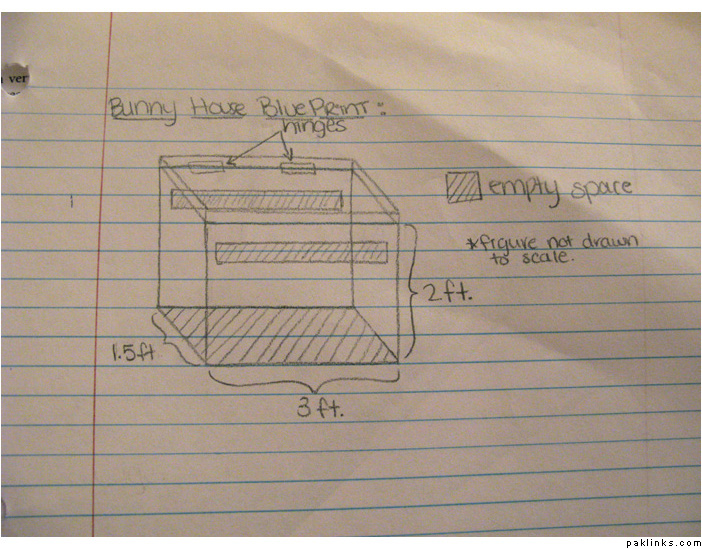 ver
Bunny House BluePrint:
hinges
empty space
*figure not drawn
to scale.
2ft.
1.5ft
3 ft.
paklinks.com